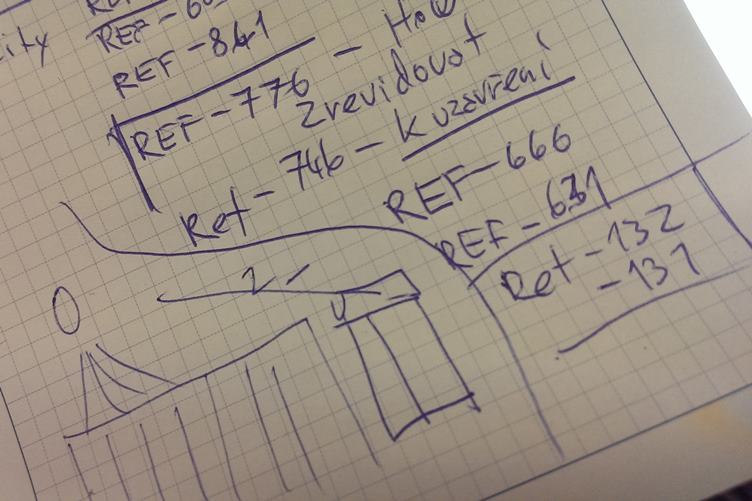 city
REF-841
REF-776 - How
Zrevidovat
Ret-746 - k uzavření
REF-666
REF-631
Ret-132
-131